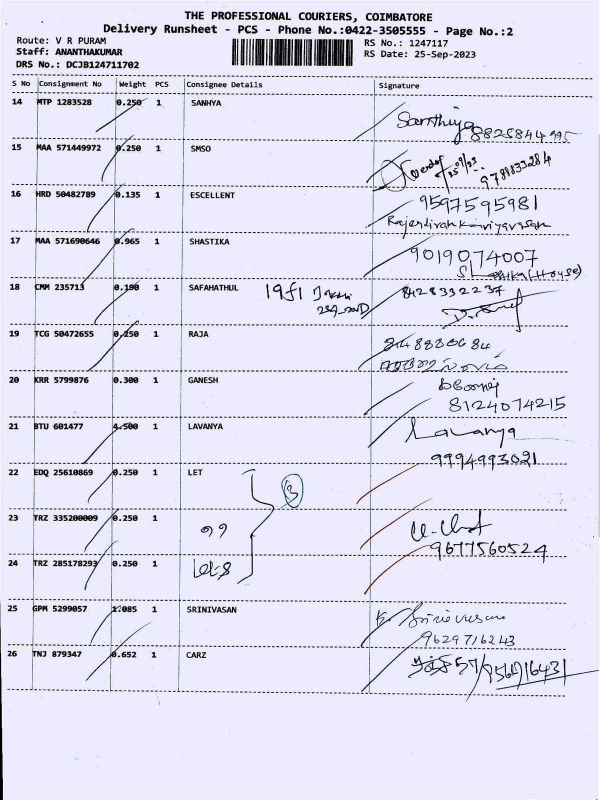 THE PROFESSIONAL COURIERS, COIMBATORE
Delivery Runsheet - PCS - Phone No.:0422-3505555 - Page No.:2
Route: V R PURAM
Staff: ANANTHAKUMAR
DRS No.: DCJB124711702
RS No.: 1247117
RS Date: 25-Sep-2023
S No Consignment No Weight PCS Consignee Details Signature
14 MTP 1283528 0.250 1 SANHYA
15 MAA 571449972 0.250 1 SMSO
9789833284
16 HRD 50482789 0.135 1 ESCELLENT 9597595981
17 MAA 571690646 0.965 1 SHASTIKA 9019074007
18 CMM 235713 0.190 1 SAFAHATHUL 8428332237
19 TCG 50472655 0.250 1 RAJA
20 KRR 5799876 0.300 1 GANESH
8124074215
21 BTU 601477 4.500 1 LAVANYA Lavanya
9994993021
22 EDQ 25610869 0.250 1 LET 3
23 TRZ 335200009 0.250 1
9677560524
24 TRZ 285178293 0.250 1
25 GPM 5299057 1.085 1 SRINIVASAN K. Srinivasan
9629716243
26 TNJ 879347 0.652 1 CARZ